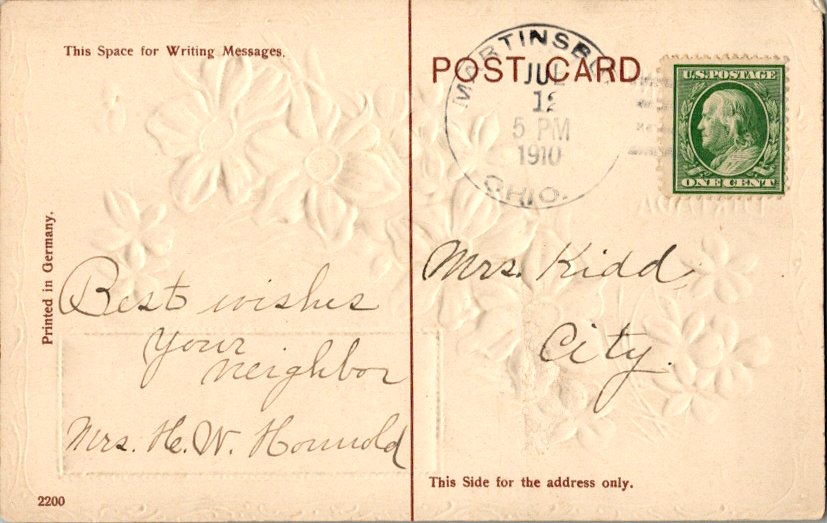 This Space for Writing Messages.
POST CARD
MARTINSB
JUL
12
5 PM
1910
OHIO.
U.S. POSTAGE
ONE CENT
Printed in Germany.
Best wishes
Your
neighbor
Mrs. H. W.
2200
Mrs. Kidd
City.
This Side for the address only.